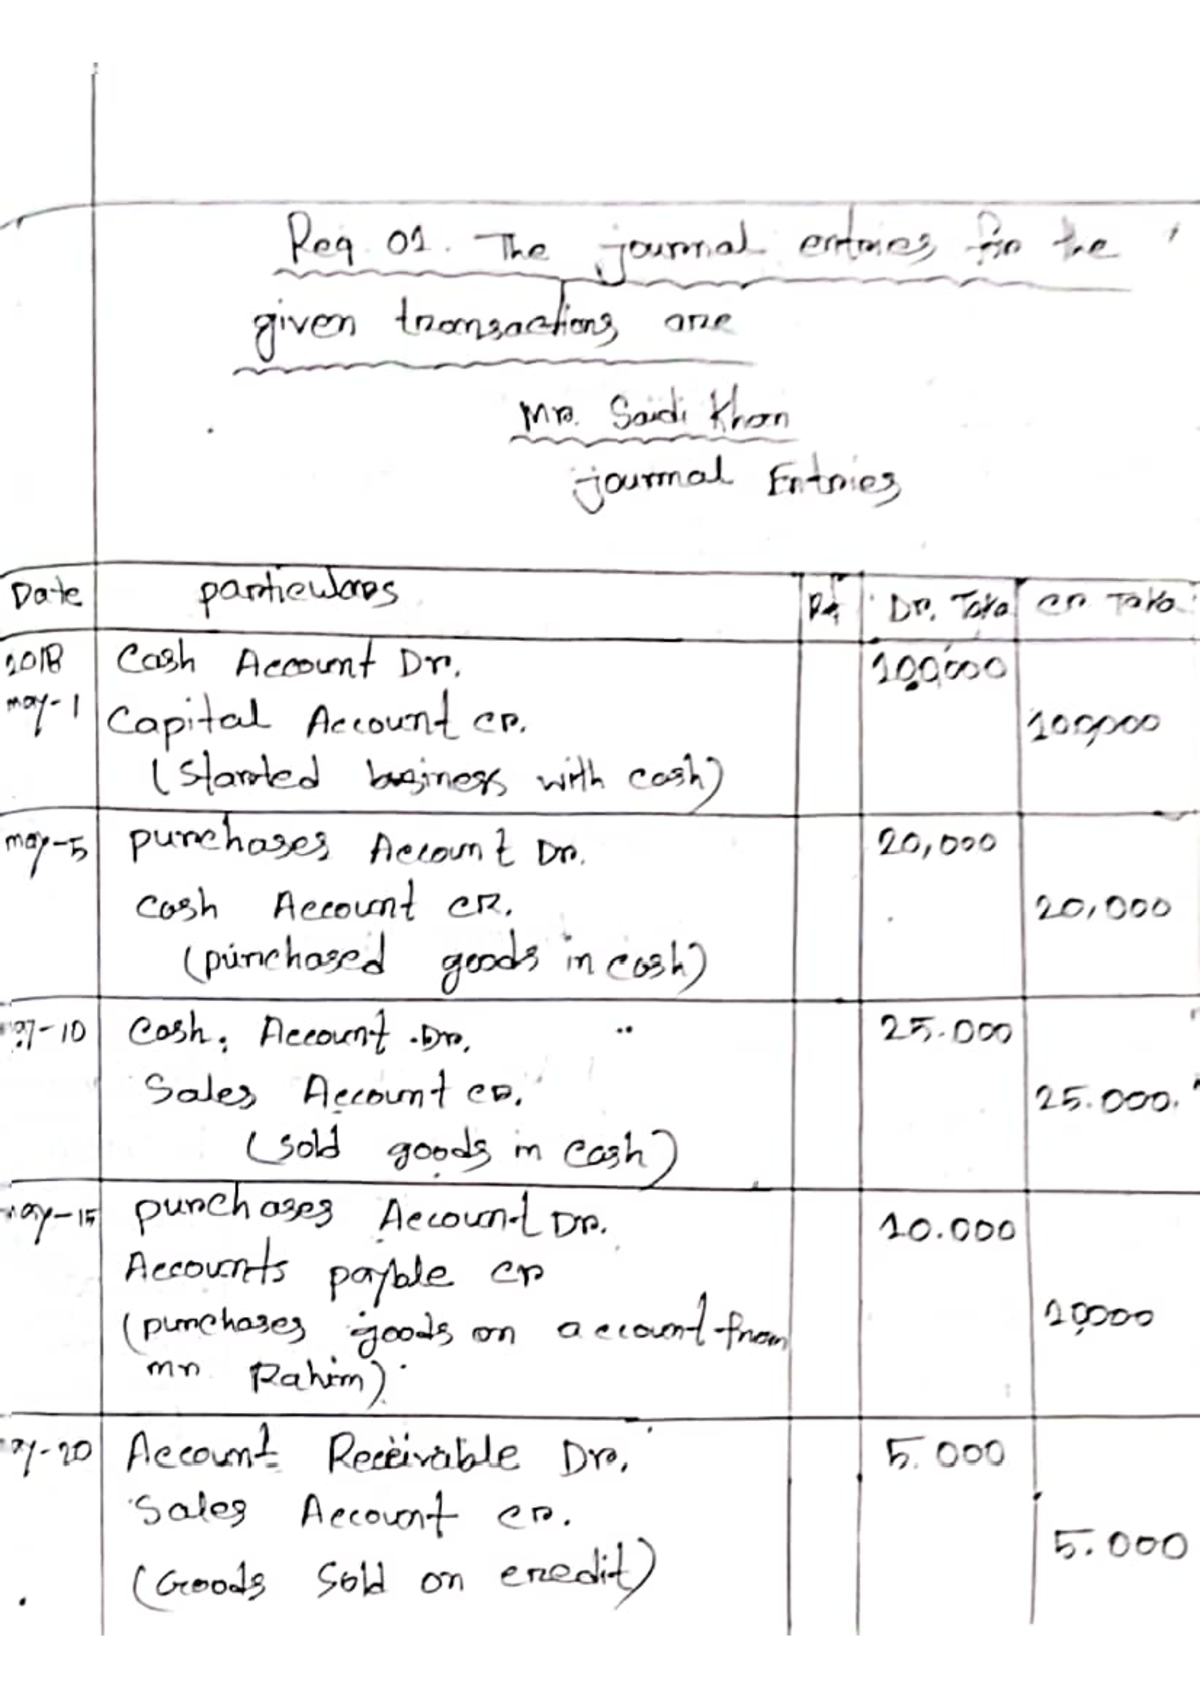 Req 01. The journal entries for the
given transactions are
Mr. Saidi Khan
journal Entries
Date particulars Rf Dr. Taka Cr Taka
2018 Cash Account Dr. 100,000
may-1 Capital Account Cr. 100,000
(Started business with cash)
may-5 purchases Account Dr. 20,000
Cash Account CR. 20,000
(purchased goods in cash)
may-10 Cash Account Dr. 25.000
Sales Account Cr. 25.000.
(sold goods in Cash)
may-15 purchases Account Dr. 10.000
Accounts payble Cr
(purchases goods on account from 10,000
mr Rahim)
may-20 Account Receivable Dr. 5.000
Sales Account Cr.
5.000
(Goods Sold on credit)